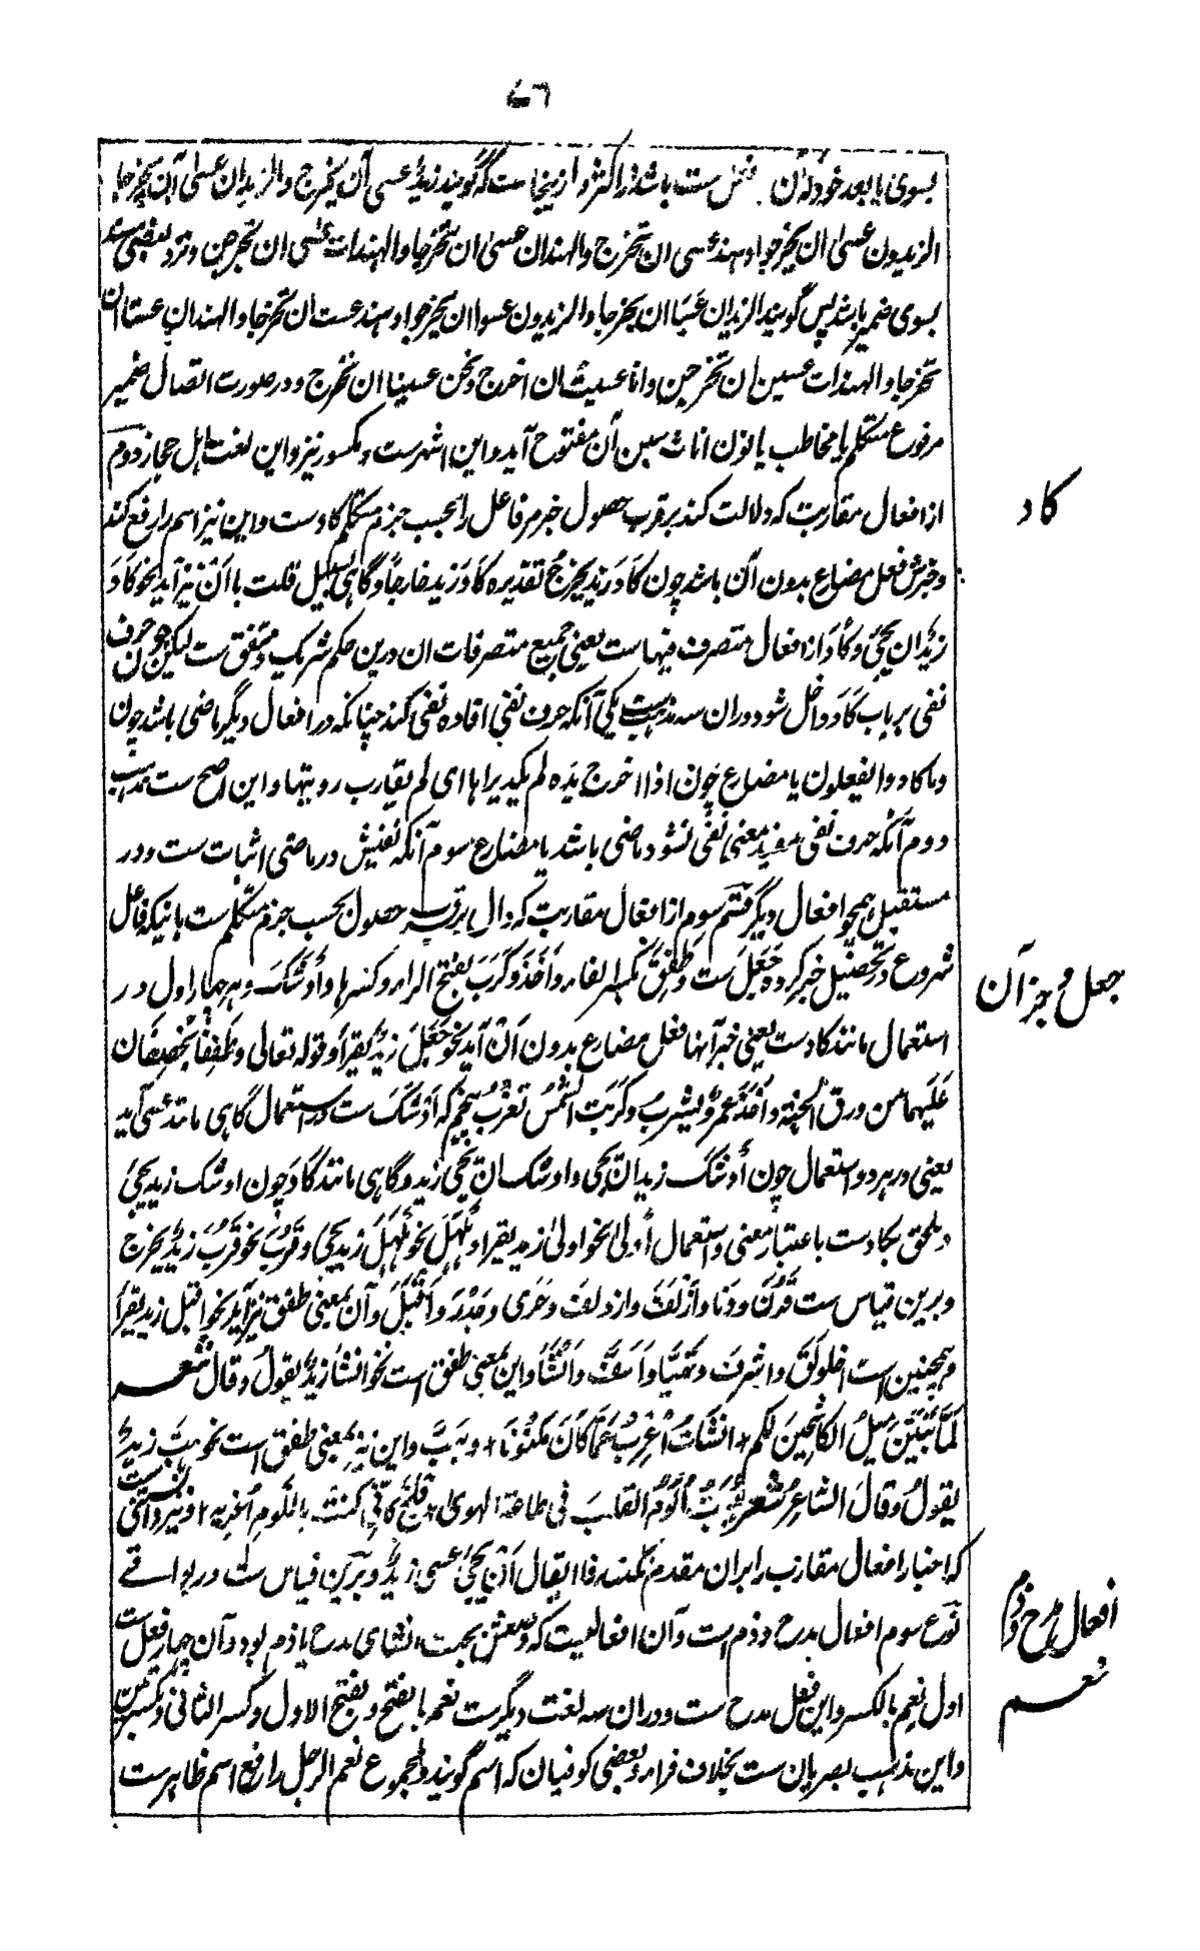 ۷٦
بسوی یا بعد خود که آن فعل ست باشد نزد اکثر و ازینجاست که گویند زیدٌ عسی أن یخرج والزیدان عسی أن یخرجا و
الزیدون عسیٰ ان یخرجوا و هند عسی ان تخرج والهندان عسیٰ ان تخرجا والهندات عسیٰ ان تخرجن و نزد بعضی مسند
بسوی ضمیر باشد پس گویند الزیدان عسَیَا ان یخرجا والزیدون عسوا ان یخرجوا و هند عست ان تخرج والهندان عستا ان
تخرجا والهندات عسین ان تخرجن وانا عسیتُ ان اخرج ونحن عسینا ان نخرج و در صورت اتصال ضمیر
مرفوع متکلم یا مخاطب یا نون اناث سین آن مفتوح آید و این اشهرست و مکسور نیز و این لغت اهل حجاز دوم
از افعال مقاربت که دلالت کند بر قرب حصول خبر مر فاعل را بحسب جزم متکلم کادست و این نیز اسم را رفع کند
و خبرش فعل مضارع بدون أن باشد چون کَادَ زیدٌ یخرجُ تقدیره کَادَ زید خارجاً و گاهی بسبیل قلت با أنْ نیز آید نحو کَادَ
زیدٌ ان یجئَ و کَادَ از افعال متصرف فیهاست یعنی جمیع متصرفات ان درین حکم شریک و متفق ست لیکن چون حرف
نفی بر باب کَادَ داخل شود دران سه مذهبست یکی آنکه حرف نفی افاده نفی کند چنانکه در افعال دیگر ماضی باشد چون
وما کادوا یفعلون یا مضارع چون اذا اخرج یده لم یکد یراها ای لم یقارب رویتها و این اصح ست مذهب
دوم آنکه حرف نفی مفید معنی نفی نشود ماضی باشد یا مضارع سوم آنکه نفیش در ماضی اثبات ست و در
مستقبل همچو افعال دیگر قسم سوم از افعال مقاربت که دال بر قرب حصول بحسب جزم متکلم ست بانیکه فاعل
شروع در تحصیل خبر کرده جَعَلَ ست و طَفِقَ بکسر الفاء و أَخَذَ و کَرَبَ بفتح الراء و کسرها و أَوشَکَ و هر چهار اول در
استعمال مانند کادست یعنی خبر آنها فعل مضارع بدون أنْ آید نحو جَعَلَ زیدٌ یقرأ و قوله تعالی وطَفِقَا یَخصِفَان
عَلَیهما من ورق الجنّة و أَخَذَ عمرٌو یشربُ و کربت الشمسُ تغربُ پنجم که أَوْشَکَ ست در استعمال گاهی مانند عسی آید
یعنی در هر دو استعمال چون أَوشَکَ زید ان یجئ و اوشک ان یجئ زید و گاهی مانند کَادَ چون اوشک زید یجئُ
و ملحق بکادست باعتبار معنی و استعمال أَولیٰ نحو اولیٰ زید یقرا و هَلْهَلَ نحو هَلهَلَ زید یجئ و قَرُبَ نحو قَرُبَ زیدٌ یخرج
و برین قیاس ست قَرُنَ و دنا و أزلَفَ و ازدلف و حَرَی و جَدُرَ و أَقبَلَ و آن بمعنی طفق نیز آید نحو اقبل زید یقرأ
و همچنین است اخلولَقَ و اشرفَ و تهیَّأ و أَسَفَّ و انشَأ و این بمعنی طفق است نحو انشأ زیدٌ یقولُ و قال شعر
لَمَّا تَبَیَّنَ مَیلُ الکاشِحِینَ لَکُم + انشَأتُ أُعرِبُ عَمَّا کَانَ مَکنُونَا + و هَبَّ و این نیز بمعنی طفق است نحو هبَّ زیدٌ
یقولُ و قالَ الشاعِرُ شعر هَبَبتُ أَلُومُ القلبَ فی طاعة الهویٰ + فلَجَّ کأنّی کنتُ باللَّومِ أُغرِیه + و نیز دانستنی ست
که اخبار افعال مقارب را بران مقدم نکنند فلا یقال أنْ یجئَ عسی زیدٌ و برین قیاس ست در بواقے
نوع سوم افعال مدح و ذم است و آن افعالیست که وضعش بجهت انشای مدح یا ذم بود و آن چهار فعل ست
اول نعم بالکسر و این فعل مدح ست و دران سه لغت دیگرست نعم بالفتح و بفتح الاول و کسر الثانی و بکسرتین
و این مذهب بصریان ست بخلاف فراء و بعضی کوفیان که اسم گویند و مجموع نعم الرجل را رافع اسم ظاهرست
کاد
جعل و جز آن
افعال مدح و ذم
نعم